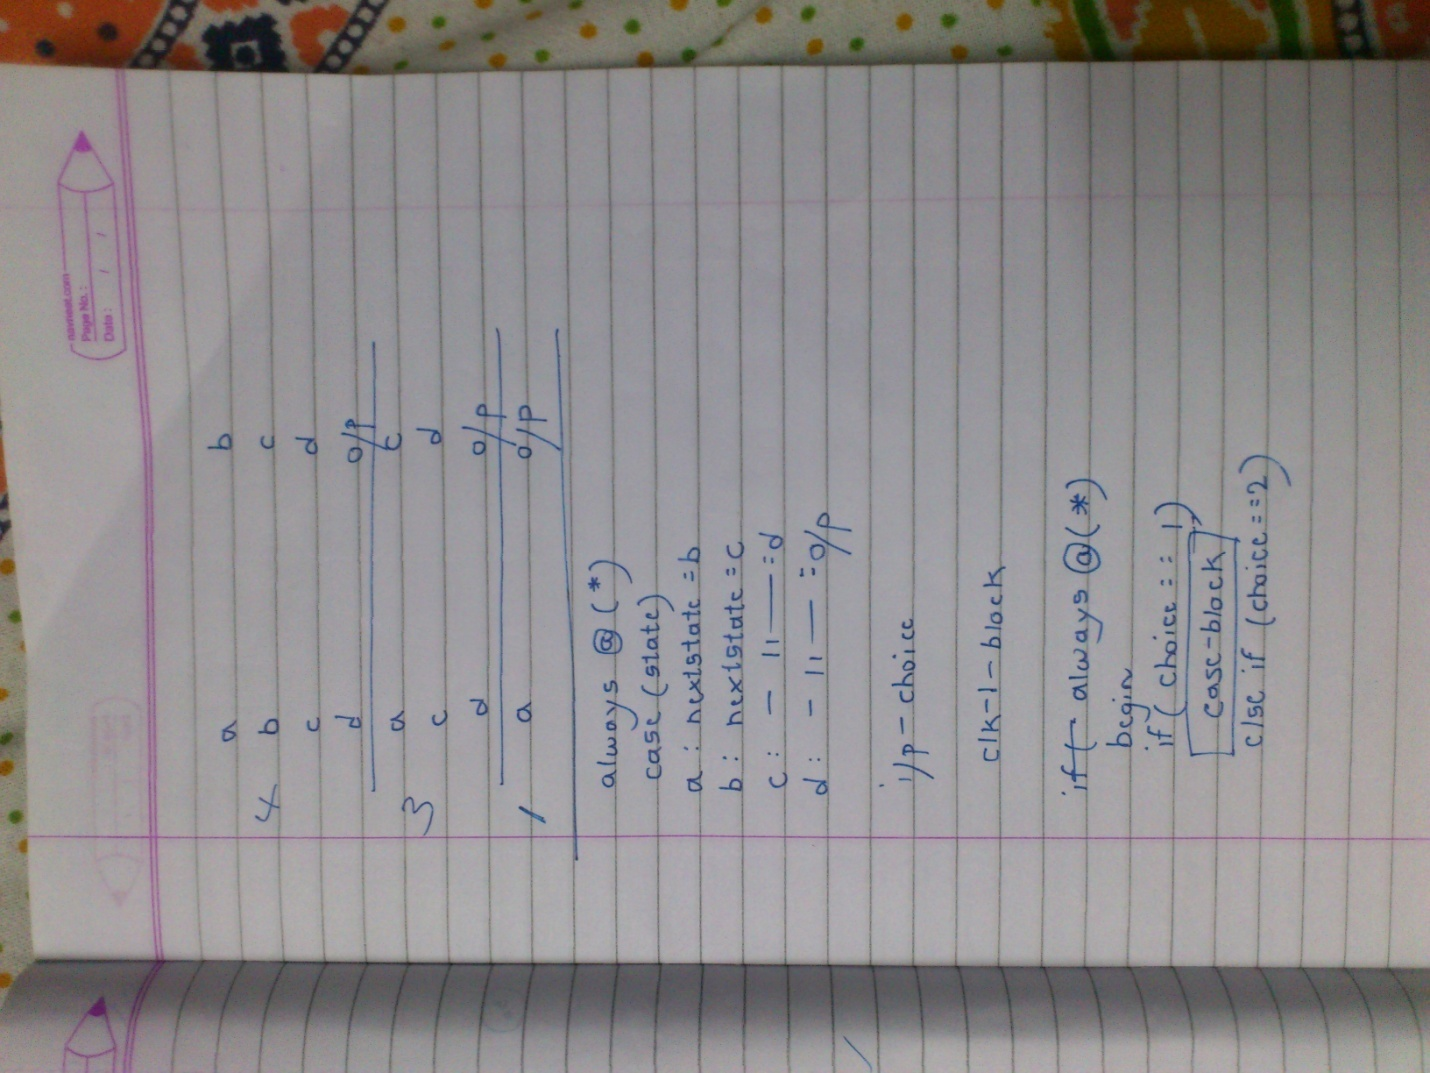 navneet.com
Page No.:
Date: / /
a b
4 b c
c d
d o/p
a c
3 c d
d o/p
1 a o/p
always @(*)
case (state)
a : nextstate = b
b : nextstate = c
c : - 11 — = d
d : - 11 — = o/p
i/p - choice
clk - 1 - block
always @(*)
begin
if (choice == 1)
case-block
else if (choice == 2)